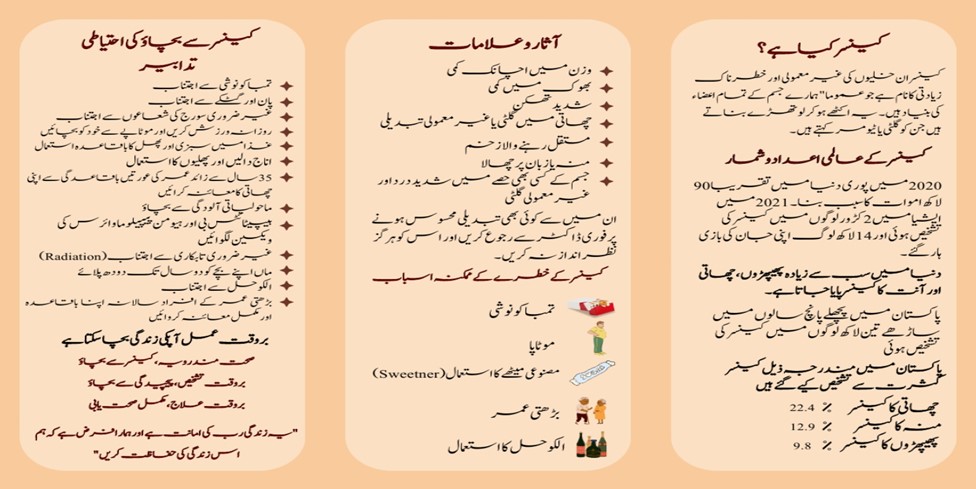 کینسر کیا ہے؟
کینسر ان خلیوں کی غیر معمولی اور خطرناک
زیادتی کا نام ہے جو عموما" ہمارے جسم کے تمام اعضاء
کی بنیاد ہیں۔ یہ اکٹھے ہو کر لوتھڑے بناتے
ہیں جن کو گلٹی یا ٹیومر کہتے ہیں۔
کینسر کے عالمی اعداد و شمار
2020 میں پوری دنیا میں تقریبا 90
لاکھ اموات کا سبب بنا۔ 2021 میں
ایشیا میں 2 کڑور لوگوں میں کینسر کی
تشخیص ہوئی اور 14 لاکھ لوگ اپنی جان کی بازی
ہار گئے۔
دنیا میں سب سے زیادہ پھیپھڑوں، چھاتی
اور آنت کا کینسر پایا جاتا ہے۔
پاکستان میں پچھلے پانچ سالوں میں
ساڑھے تین لاکھ لوگوں میں کینسر کی
تشخیص ہوئی
پاکستان میں مندرجہ ذیل کینسر
کثرت سے تشخیص کیے گئے ہیں
چھاتی کا کینسر % 22.4
منہ کا کینسر % 12.9
پھیپھڑوں کا کینسر % 9.8
آثار و علامات
وزن میں اچانک کمی
بھوک میں کمی
شدید تھکن
چھاتی میں گلٹی یا غیر معمولی تبدیلی
مستقل رہنے والا زخم
منہ یا زبان پر چھالا
جسم کے کسی بھی حصے میں شدید درد اور
غیر معمولی گلٹی
ان میں سے کوئی بھی تبدیلی محسوس ہونے
پر فوری ڈاکٹر سے رجوع کریں اور اس کو ہرگز
نظر انداز نہ کریں۔
کینسر کے خطرے کے ممکنہ اسباب
تمباکو نوشی
موٹاپا
مصنوعی میٹھے کا استعمال (Sweetner)
بڑھتی عمر
الکوحل کا استعمال
کینسر سے بچاؤ کی احتیاطی
تدابیر
تمباکو نوشی سے اجتناب
پان اور گٹکے سے اجتناب
غیر ضروری سورج کی شعاعوں سے اجتناب
روزانہ ورزش کریں اور موٹاپے سے خود کو بچائیں
غذا میں سبزی اور پھل کا باقاعدہ استعمال
اناج دالیں اور پھلیوں کا استعمال
35 سال سے زائد عمر کی عورتیں باقاعدگی سے اپنی
چھاتی کا معائنہ کرائیں
ماحولیاتی آلودگی سے بچاؤ
ہیپیٹائٹس بی اور ہیومن پیپیلوما وائرس کی
ویکسین لگوائیں
غیر ضروری تابکاری سے اجتناب (Radiation)
ماں اپنے بچے کو دو سال تک دودھ پلائے
الکوحل سے اجتناب
بڑھتی عمر کے افراد سالانہ اپنا باقاعدہ
اور مکمل معائنہ کروائیں
بروقت عمل آپکی زندگی بچا سکتا ہے
صحت مند رویہ، کینسر سے بچاؤ
بروقت تشخیص، پیچیدگی سے بچاؤ
بروقت علاج، مکمل صحت یابی
"یہ زندگی رب کی امانت ہے اور ہمارا فرض ہے کہ ہم
اس زندگی کی حفاظت کریں"